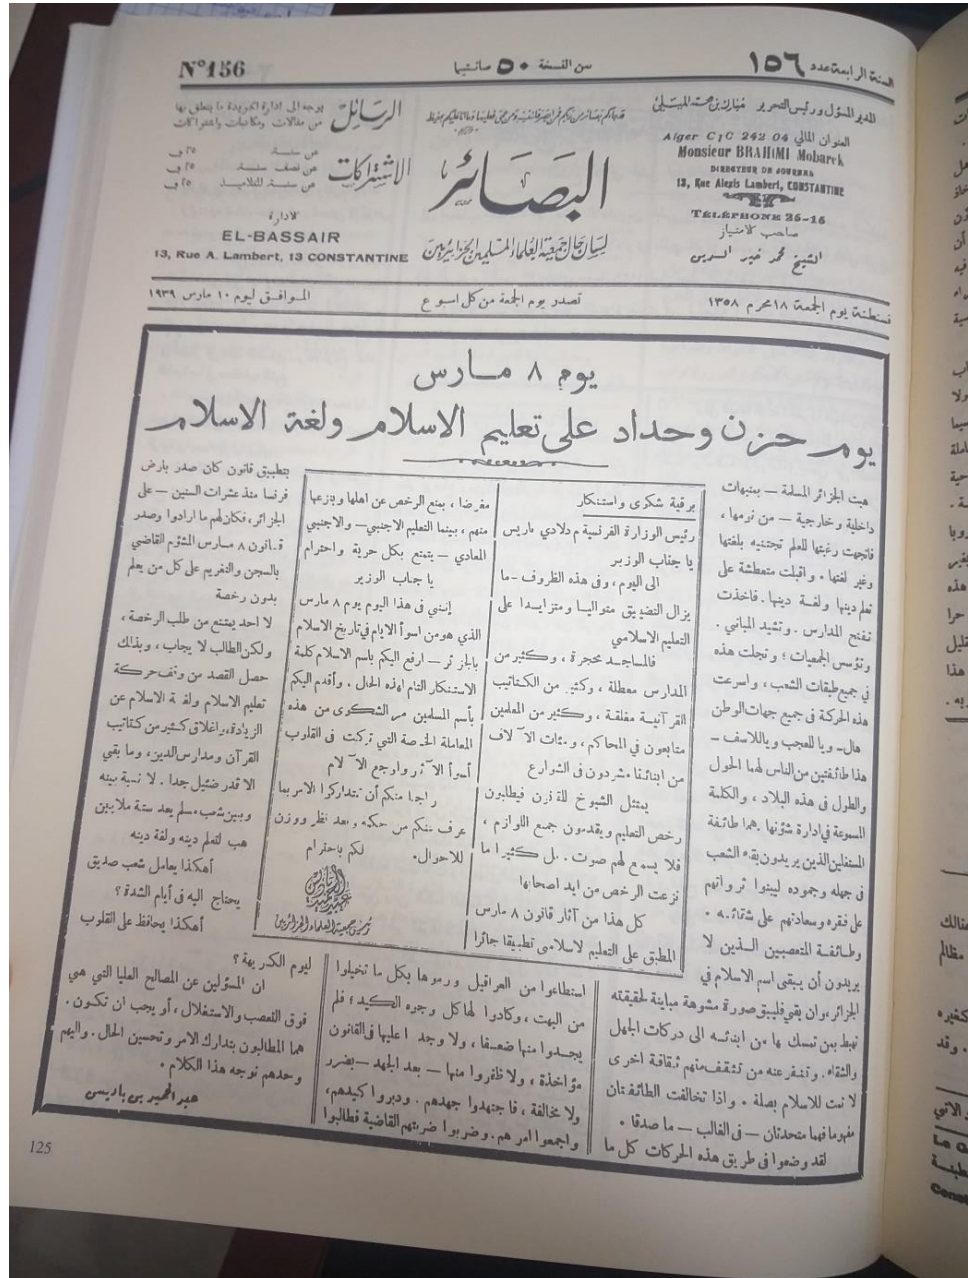 السنة الرابعة عدد ١٥٦
ثمن النسخة ٥٠ صانتيما
N° 156
المدير المسؤل ورئيس التحرير مبارك بن محمد الميلي
العنوان المالي Alger C/C 242 04
Monsieur BRAHIMI Mobarek
DIRECTEUR DU JOURNAL
13, Rue Alexis Lambert, CONSTANTINE
TÉLÉPHONE 25-15
صاحب الامتياز
الشيخ محمد خير الدين
البصائر
لسان حال جمعية العلماء المسلمين الجزائريين
الرسائل
يوجه الى ادارة الجريدة ما يتعلق بها
من مقالات ومكاتبات واشتراكات
الاشتراكات
عن سنة ٣٥ ف
عن نصف سنة ٢٥ ف
عن سنة للتلاميذ ٢٥ ف
الادارة
EL-BASSAIR
13, Rue A. Lambert, 13 CONSTANTINE
قسنطينة يوم الجمعة ١٨ محرم ١٣٥٨
تصدر يوم الجمعة من كل اسبوع
الموافق ليوم ١٠ مارس ١٩٣٩
يوم ٨ مارس
يوم حزن وحداد على تعليم الاسلام ولغة الاسلام
هبت الجزائر المسلمة — بمنبهات
داخلية وخارجية — من نومها،
فاتجهت رغبتها للعلم تجتنيه بلغتها
وغير لغتها. واقبلت متعطشة على
تعلم دينها ولغة دينها. فاخذت
تفتح المدارس. وتشيد المباني.
وتؤسس الجمعيات؛ وتجلت هذه
في جميع طبقات الشعب، واسرعت
هذه الحركة في جميع جهات الوطن
هال — ويا للعجب ويا للاسف —
هذا طائفتين من الناس لهما الحول
والطول في هذه البلاد، والكلمة
المسموعة في ادارة شؤنها. هما طائفة
المستغلين الذين يريدون بقاء الشعب
في جهله وجموده ليبنوا ثرواتهم
على فقره وسعادتهم على شقائه.
وطائفة المتعصبين الذين لا
يريدون أن يبقى اسم الاسلام في
الجزائر، وان بقي فليبق صورة مشوهة مباينة لحقيقته
تهبط بمن تمسك بها من ابنائه الى دركات الجهل
والشقاء. وتنفر عنه من تثقف منهم ثقافة اخرى
لا تمت للاسلام بصلة. واذا تخالفت الطائفتان
مفهوما فهما متحدتان — في الغالب — ما صدقا.
لقد وضعوا في طريق هذه الحركات كل ما
برقية شكوى واستنكار
رئيس الوزارة الفرنسية م دلادي باريس
يا جناب الوزير
الى اليوم، وفي هذه الظروف — ما
يزال التضييق متواليا ومتزايدا على
التعليم الاسلامي
فالمساجد محجرة، وكثير من
المدارس معطلة، وكثير من الكتاتيب
القرآنية مغلقة، وكثير من المعلمين
متابعون في المحاكم، ومئات الآلاف
من ابنائنا مشردون في الشوارع
يمتثل الشيوخ للقانون فيطلبون
رخص التعليم ويقدمون جميع اللوازم،
فلا يسمع لهم صوت. بل كثيرا ما
نزعت الرخص من ايد اصحابها
كل هذا من آثار قانون ٨ مارس
المطبق على التعليم الاسلامي تطبيقا جائرا
مغرضا، بمنع الرخص عن اهلها وينزعها
منهم، بينما التعليم الاجنبي — والاجنبي
المعادي — يتمتع بكل حرية واحترام
يا جناب الوزير
إنني في هذا اليوم يوم ٨ مارس
الذي هو من اسوأ الايام في تاريخ الاسلام
بالجزائر — ارفع اليكم باسم الاسلام كلمة
الاستنكار التام لهذه الحال. وأقدم اليكم
بأسم المسلمين مر الشكوى من هذه
المعاملة الخاصة التي تركت في القلوب
أسوأ الآثار واوجع الآلام
راجيا منكم أن تتداركوا الامر بما
عرف عنكم من حكمة وبعد نظر ووزن
للاحوال. لكم باحترام
عبد الحميد بن باديس
رئيس جمعية العلماء الجزائريين
استطاعوا من العراقيل ورموها بكل ما تخيلوا
من البهت، وكادوا لها كل وجوه الكيد؛ فلم
يجدوا منها ضعفا، ولا وجدا عليها في القانون
مؤاخذة، ولا ظفروا منها — بعد الجهد — بضرر
ولا مخالفة، فاجتهدوا جهدهم. ودبروا كيدهم،
واجمعوا امرهم. وضربوا ضربتهم القاضية فطالبوا
بتطبيق قانون كان صدر بارض
فرنسا منذ عشرات السنين — على
الجزائر، فكان لهم ما ارادوا وصدر
قانون ٨ مارس المشؤم القاضي
بالسجن والتغريم على كل من يعلم
بدون رخصة
لا احد يمتنع من طلب الرخصة،
ولكن الطالب لا يجاب، وبذلك
حصل القصد من وقف حركة
تعليم الاسلام ولغة الاسلام عن
الزيادة، واغلاق كثير من كتاتيب
القرآن ومدارس الدين، وما بقي
الا قدر ضئيل جدا. لا نسبة بينه
وبين شعب مسلم بعد ستة ملايين
هب لتعلم دينه ولغة دينه
أهكذا يعامل شعب صديق
يحتاج اليه في أيام الشدة؟
أهكذا يحافظ على القلوب
ليوم الكريهة؟
ان المسؤلين عن المصالح العليا التي هي
فوق التعصب والاستغلال، أو يجب ان تكون.
هما المطالبون بتدارك الامر وتحسين الحال. واليهم
وحدهم نوجه هذا الكلام.
عبد الحميد بن باديس
125